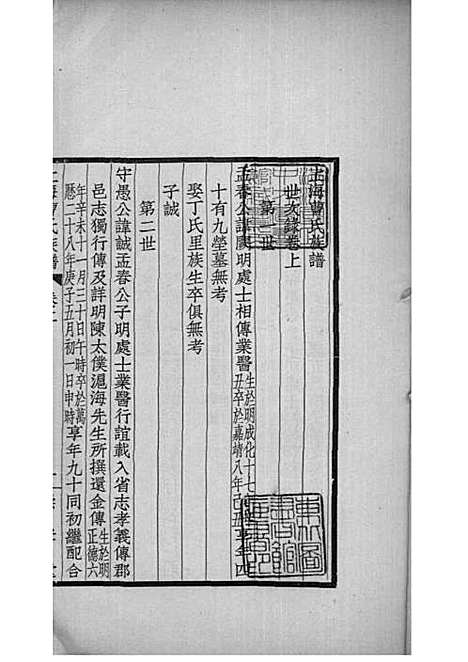 上海曹氏族譜
世次錄卷上
第一世
孟春公諱慶明處士相傳業醫生於明成化十七年
丑卒於嘉靖八年己丑享年四
十有九塋墓無考
娶丁氏里族生卒俱無考
子誠
第二世
守愚公諱誠孟春公子明處士業醫行誼載入省志孝義傳郡
邑志獨行傳及詳明陳太僕滬海先生所撰還金傳生於明
正德六
年辛未十一月三十日午時卒於萬
曆二十八年庚子五月初一日申時享年九十同初繼配合
上海曹氏族譜